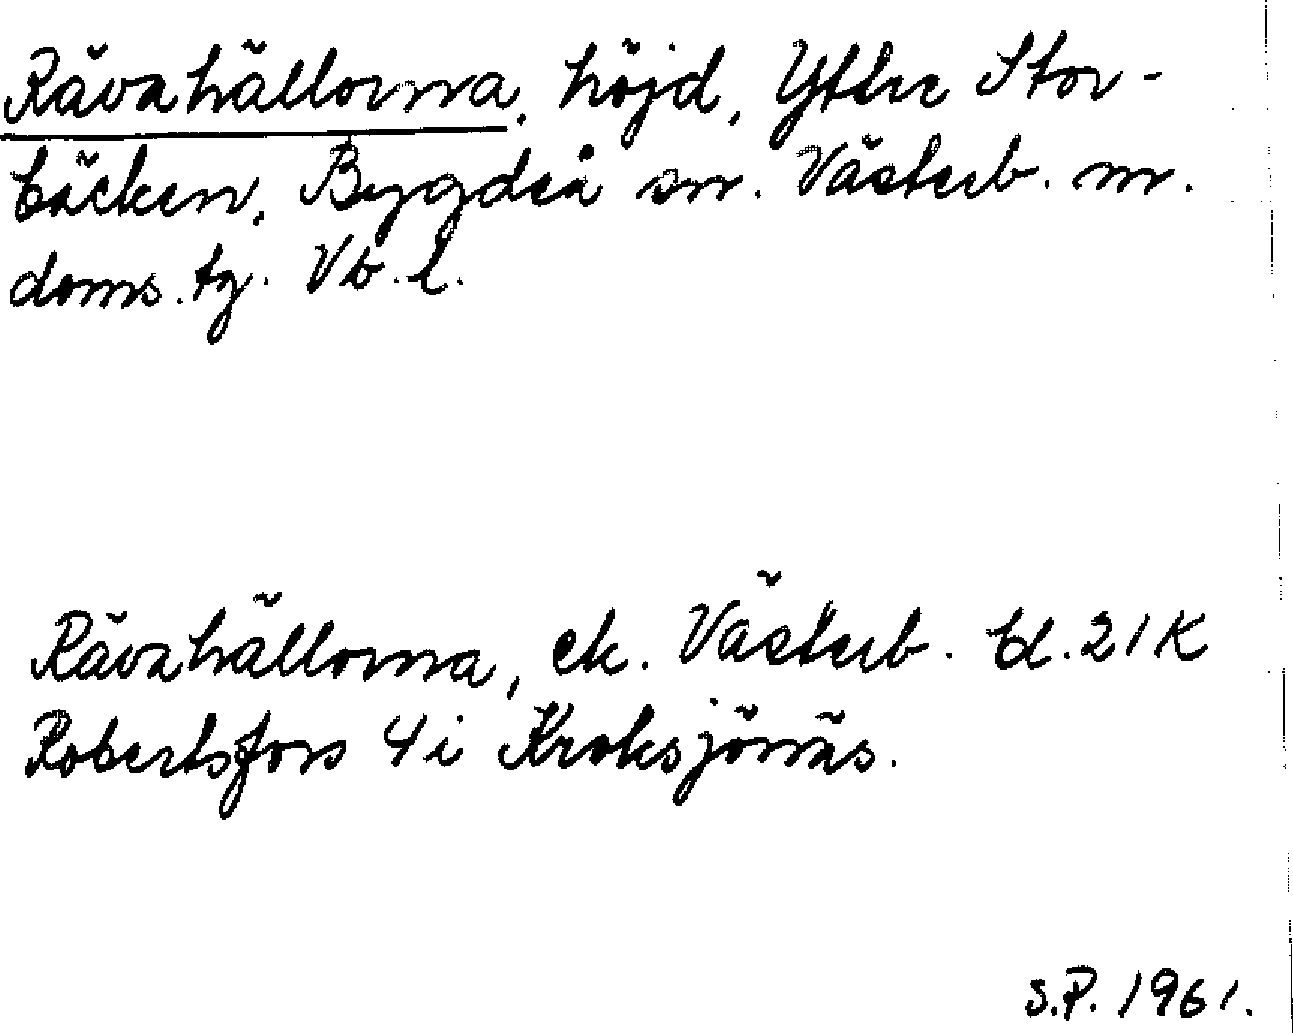 Rävahällorna, höjd, Yttre Stor-
bäcken, Bygdeå sn. Västerb. m.
doms.tg. Vb.l.
Rävahällorna, ek. Västerb. bl. 21K
Robertsfors 4i Kroksjönäs.
S.P. 1961.